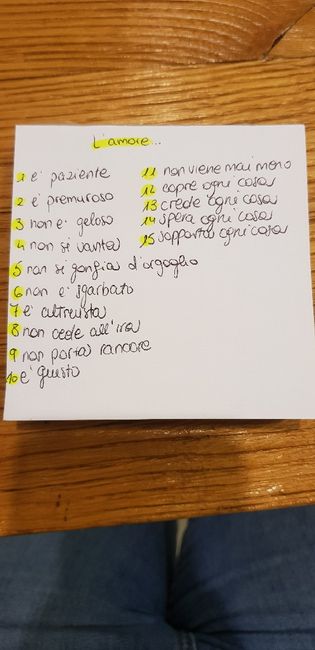 L'amore...
1 e' paziente
2 e' premuroso
3 non e' geloso
4 non si vanta
5 non si gonfia d'orgoglio
6 non e' sgarbato
7 e' altruista
8 non cede all'ira
9 non porta rancore
10 e' giusto
11 non viene mai meno
12 copre ogni cosa
13 crede ogni cosa
14 spera ogni cosa
15 sopporta ogni cosa